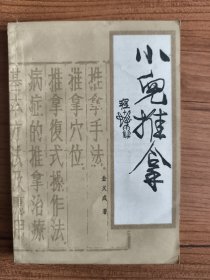 小兒推拿
推拿手法
推拿穴位
推拿復式操作法
病症的推拿治療
基本方法及應用
金义成 著